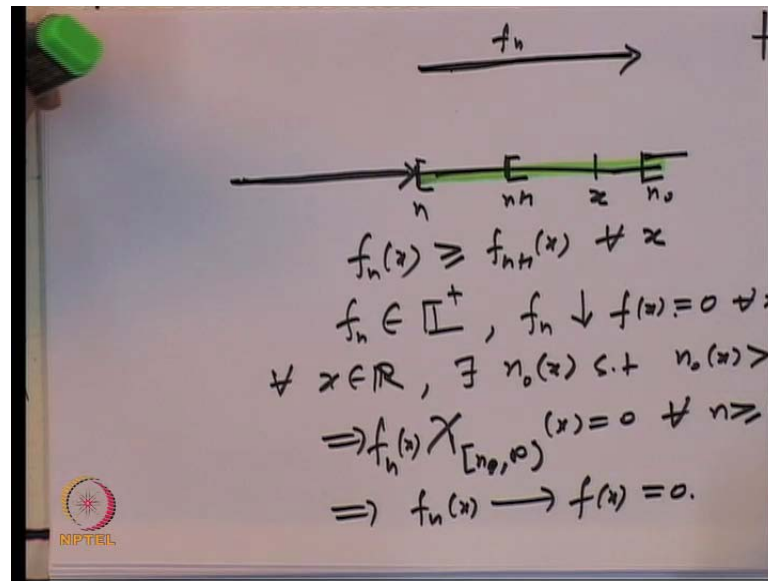 fₙ
n n+1 x n₀
fₙ(x) ≥ fₙ₊₁(x) ∀ x
fₙ ∈ 𝕃⁺, fₙ ↓ f(x) = 0 ∀ x
∀ x ∈ ℝ, ∃ n₀(x) s.t n₀(x) >
⇒ fₙ(x) χ_[n₀,∞) (x) = 0 ∀ n ≥
⇒ fₙ(x) ⟶ f(x) = 0.
NPTEL